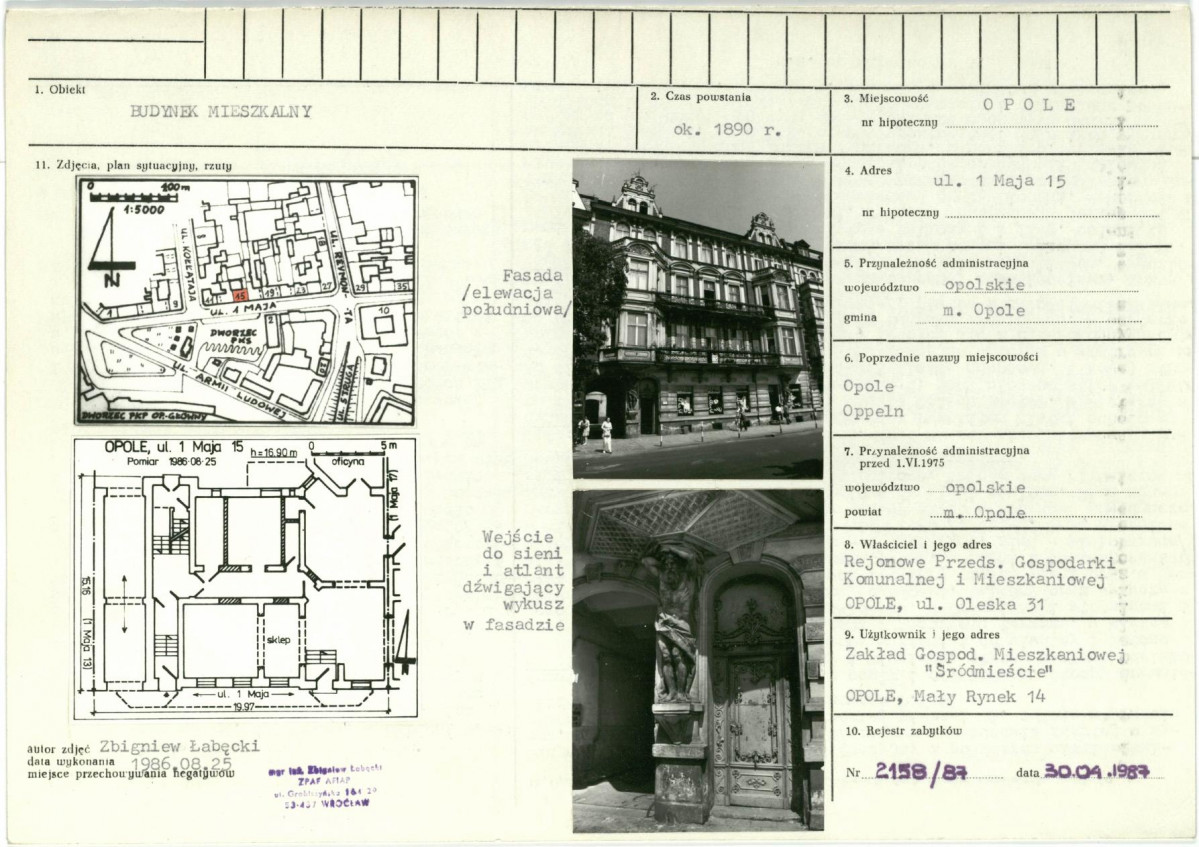 1. Obiekt
BUDYNEK MIESZKALNY
2. Czas powstania
ok. 1890 r.
3. Miejscowość
OPOLE
nr hipoteczny
11. Zdjęcia, plan sytuacyjny, rzuty
0 100 m
1:5000
N
UL. KOŁŁĄTAJA
UL. REYMONTA
1
9
11
15
19
23
27
29
35
18
UL. 1 MAJA
2
10
DWORZEC
PKS
UL. ARMII LUDOWEJ
UL. STRUGA
DWORZEC PKP OP.-GŁÓWNY
OPOLE, ul. 1 Maja 15
Pomiar 1986-08-25
h=16.90 m
0 5 m
oficyna
(1 Maja 17)
15,16
(1 Maja 13)
sklep
ul. 1 Maja
19.97
Fasada
/elewacja
południowa/
Wejście
do sieni
i atlant
dźwigający
wykusz
w fasadzie
autor zdjęć Zbigniew Łabęcki
data wykonania 1986.08.25
miejsce przechowywania negatywów
mgr inż. Zbigniew Łabęcki
ZPAF AFIAP
WROCŁAW
4. Adres
ul. 1 Maja 15
nr hipoteczny
5. Przynależność administracyjna
województwo opolskie
gmina m. Opole
6. Poprzednie nazwy miejscowości
Opole
Oppeln
7. Przynależność administracyjna
przed 1.VI.1975
województwo opolskie
powiat m. Opole
8. Właściciel i jego adres
Rejonowe Przeds. Gospodarki
Komunalnej i Mieszkaniowej
OPOLE, ul. Oleska 31
9. Użytkownik i jego adres
Zakład Gospod. Mieszkaniowej
"Śródmieście"
OPOLE, Mały Rynek 14
10. Rejestr zabytków
Nr 2158/87 data 30.04.1987